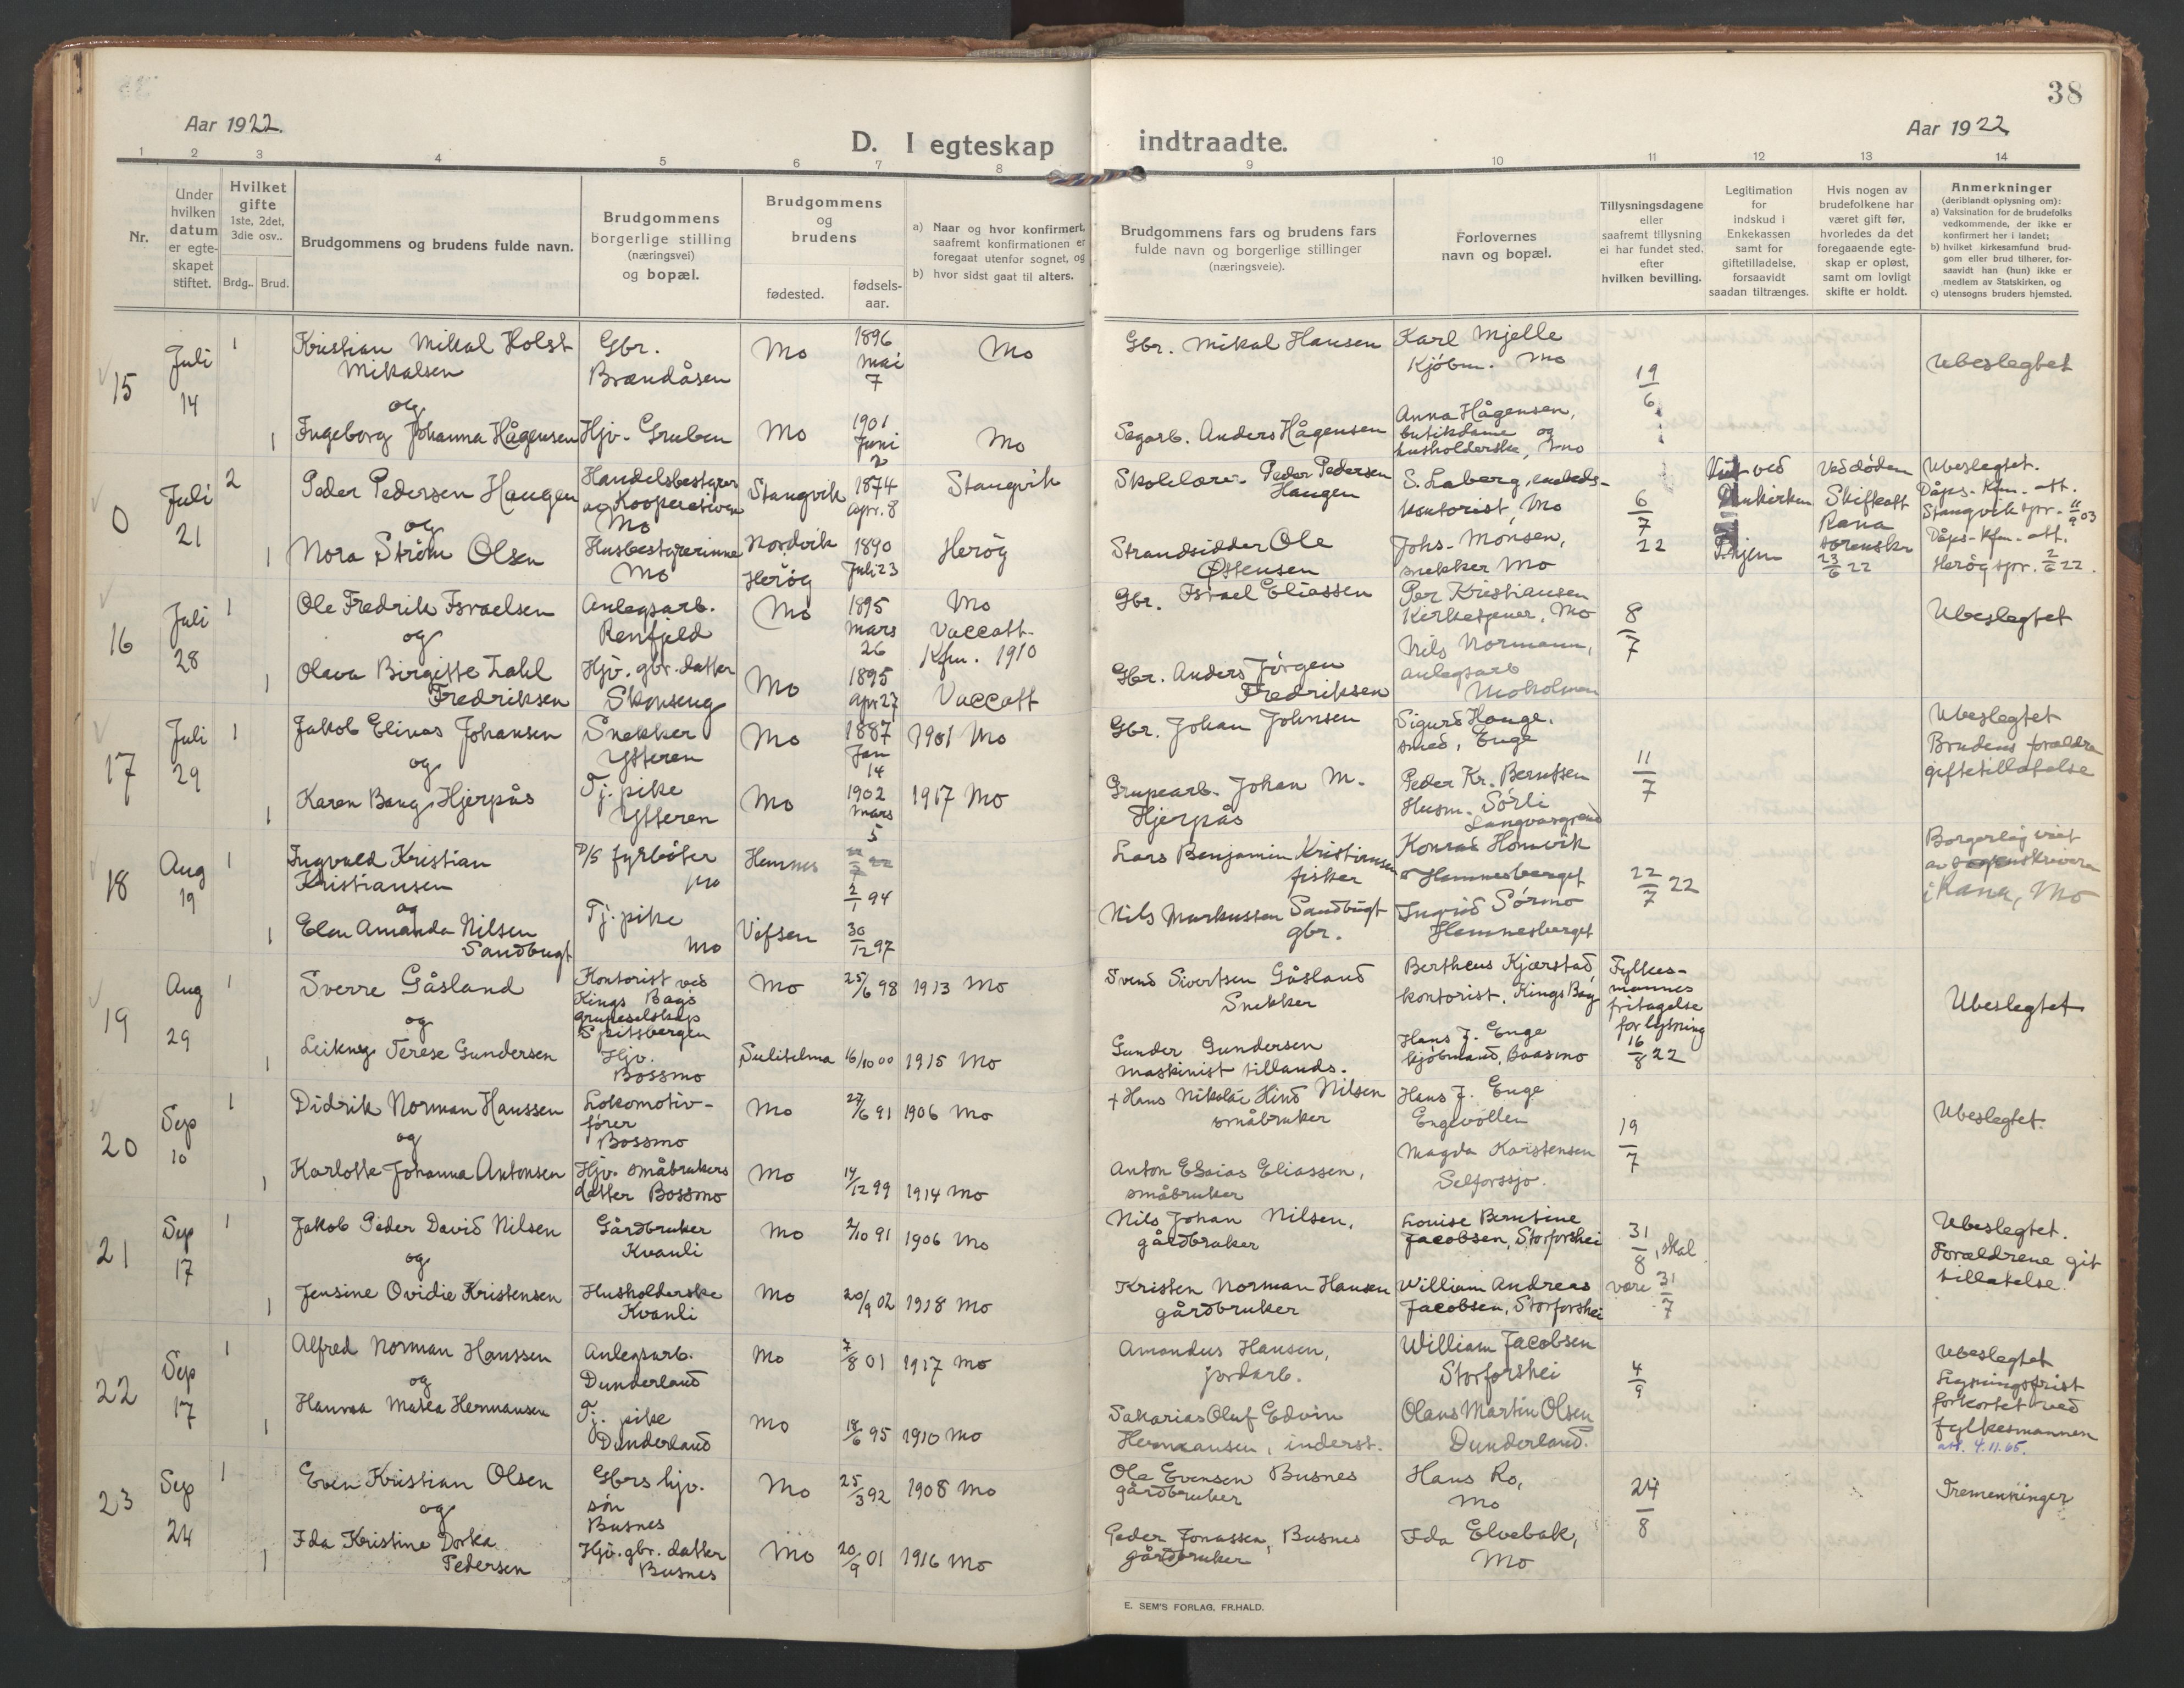 38
Aar 1922.
Aar 1922
D. I egteskap indtraadte.
1 2 3 4 5 6 7 8 9 10 11 12 13 14
Nr.
Under hvilken datum er egteskapet stiftet.
Hvilket gifte
1ste, 2det, 3die osv..
Brdg.. Brud.
Brudgommens og brudens fulde navn.
Brudgommens borgerlige stilling (næringsvei) og bopæl.
Brudgommens og brudens
fødested.
fødsels-aar.
a) Naar og hvor konfirmert, saafremt konfirmationen er foregaat utenfor sognet, og
b) hvor sidst gaat til alters.
Brudgommens fars og brudens fars fulde navn og borgerlige stillinger (næringsveie).
Forlovernes navn og bopæl.
Tillysningsdagene eller saafremt tillysning ei har fundet sted. efter hvilken bevilling.
Legitimation for indskud i Enkekassen samt for giftetilladelse, forsaavidt saadan tiltrænges.
Hvis nogen av brudefolkene har været gift før, hvorledes da det foregaaende egteskap er opløst, samt om lovligt skifte er holdt.
Anmerkninger
(deriblandt oplysning om):
a) Vaksination for de brudefolks vedkommende, der ikke er konfirmert her i landet;
b) hvilket kirkesamfund brudgom eller brud tilhører, forsaavidt han (hun) ikke er medlem av Statskirken, og
c) utensogns bruders hjemsted.
15 Juli 14 1 Kristian Mikal Holst Mikalsen Gbr. Brændåsen Mo 1896 Mai 7 Mo Gbr. Mikal Hansen Karl Mjelle Kjöbm. Mo 19/6 Ubeslegtet
og
1 Ingeborg Johanna Hågensen Hjv. Gruben Mo 1901 Juni 2 Mo Sagarb. Anders Hågensen Anna Hågensen, butikdame og husholderske, Mo
0 Juli 21 2 Peder Pedersen Haugen Handelsbestyrer av Kooperativen Mo Stangvik 1874 Apr. 8 Stangvik Skolelærer Peder Pedersen Haugen S. Laberg, kontorist, Mo 6/7 22 ved døden Skifteatt Rana sorenskr 23/6 22 Ubeslegtet. Dåps-Kfm.-att. Stangvik spr. 11/9 03
og
1 Nora Ström Olsen Husbestyrerinne Mo Nordvik Heröy 1890 Juli 23 Heröy Strandsidder Ole Ottensen Johs. Monsen, snekker Mo Dåps-Kfm.-att. Heröy spr. 2/6 22.
16 Juli 28 1 Ole Fredrik Israelsen Anlegsarb. Renfjeld Mo 1895 Mars 26 Mo Vaccatt. Kfm. 1910 Gbr. Israel Eliassen Per Kristiansen Kirketjener, Mo 8/7 Ubeslegtet
og
1 Olava Birgitte Fredriksen Hjv. gbr. datter Skonseng Mo 1895 Apr 27 Vaccatt Gbr. Anders Jörgen Fredriksen Nils Normann, anlegsarb Moholmen
17 Juli 29 1 Jakob Elinas Johansen Snekker Ytteren Mo 1887 Jan 14 1901 Mo Gbr. Johan Johnsen Sigurd Hauge, smed, Enge 11/7 Ubeslegtet Brudens forældre giftetillatelse
og
1 Karen Bang Hjerpås Tj. pike Ytteren Mo 1902 Mars 5 1917 Mo Grupearb. Johan M. Hjerpås Peder Kr. Berntsen Husm. Sörli Langvasgrend
18 Aug 19 1 Ingvald Kristian Kristiansen D/S fyrböter Mo Hemnes 2/1 94 Lars Benjamin Kristiansen fisker Konrad Homvik Hemnesberget 22/7 22 Borgerlig viet av sorenskriveren i Rana, Mo
og
1 Elen Amanda Nilsen Sandbugt Tj. pike Mo Vefsen 30/12 97 Nils Markussen Sandbugt gbr. Ingrid Sörmo Hemnesberget
19 Aug 29 1 Sverre Gåsland Kontorist ved Kings Bays grupeselskap Spitsbergen Mo 25/6 98 1913 Mo Svend Sivertsen Gåsland Snekker Bertheus Kjærstad, kontorist, Kings Bay Fylkesmannes fritagelse for lysning 16/8 22 Ubeslegtet
og
1 Leikny Terese Gundersen Hjv. Bossmo Sulitelma 16/10 00 1915 Mo Gunder Gundersen maskinist tillands. Hans J. Enge kjöbmand, Baasmo
20 Sep 10 1 Didrik Norman Hanssen Lokomotivförer Bossmo Mo 27/6 91 1906 Mo + Hans Nikolai Hind Nilsen småbruker Hans J. Enge Engevollen 19/7 Ubeslegtet.
og
1 Karlotte Johanna Antonsen Hjv. småbrukers datter Bossmo Mo 14/12 99 1914 Mo Anton Esaias Eliassen, småbruker Magda Karstensen Selforssjo.
21 Sep 17 1 Jakob Peder David Nilsen Gårdbruker Kvanli Mo 2/10 91 1906 Mo Nils Johan Nilsen, gårdbruker Louise Berntine Jacobsen, Storforshei 31/8, skal være 31/7 Ubeslegtet. Forældrene git tillatelse.
og
1 Jensine Ovidie Kristensen Husholderske Kvanli Mo 20/9 02 1918 Mo Kristen Norman Hansen gårdbruker William Andreas Jacobsen, Storforshei
22 Sep 17 1 Alfred Norman Hanssen Anlegsarb. Dunderland Mo 7/8 01 1917 Mo Amandus Hansen, jordarb. William Jacobsen Storforshei 4/9 Ubeslegtet Lysningsfrist forkortet ved fylkesmannen att. 4.11.65.
og
1 Hanna Matea Hermansen Tj. pike Dunderland Mo 18/6 95 1910 Mo Sakarias Oluf Edvin Hermansen, inderst. Olaus Martin Olsen Dunderland.
23 Sep 24 1 Even Kristian Olsen Gbrs hjv. sön Busnes Mo 25/3 92 1908 Mo Ole Evensen Busnes gårdbruker Hans Ro, Mo 24/8 Tremenninger
og
1 Ida Kristine Dorka Pedersen Hjv. gbr. datter Busnes Mo 20/9 01 1916 Mo Peder Jonassen, Busnes gårdbruker Ida Elvebak, Mo
E. SEM'S FORLAG, FR.HALD.